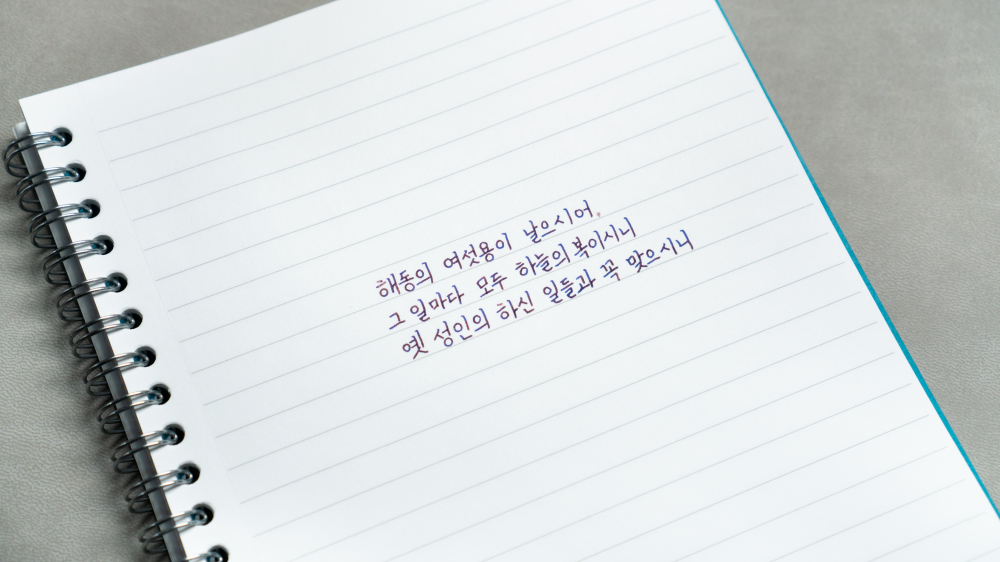 해동의 여섯용이 날으시어,
그 일마다 모두 하늘의 복이시니
옛 성인의 하신 일들과 꼭 맞으시니